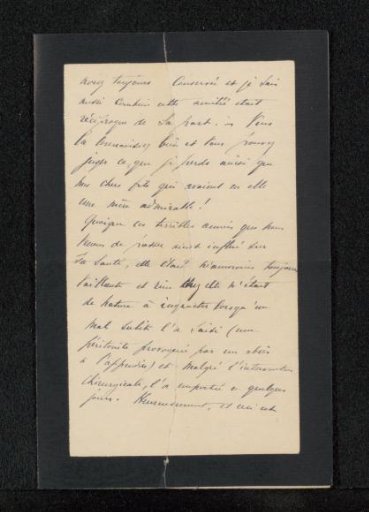 avez toujours conservée et je sais
aussi combien cette amitié était
réciproque de sa part. Vous
la connaissiez bien et vous pouvez
juger ce que je perds ainsi que
mes chers fils qui avaient en elle
une mère admirable!
Quoique ces terribles années que nous
venons de passer aient influé sur
sa santé, elle était néanmoins toujours
vaillante et rien chez elle n'était
de nature à inquiéter lorsqu'un
mal subit l'a saisi (une
péritonite provoquée par un abcès
à l'appendice) et malgré l'intervention
chirurgicale, l'a emportée en quelques
jours. Heureusement, et ceci est